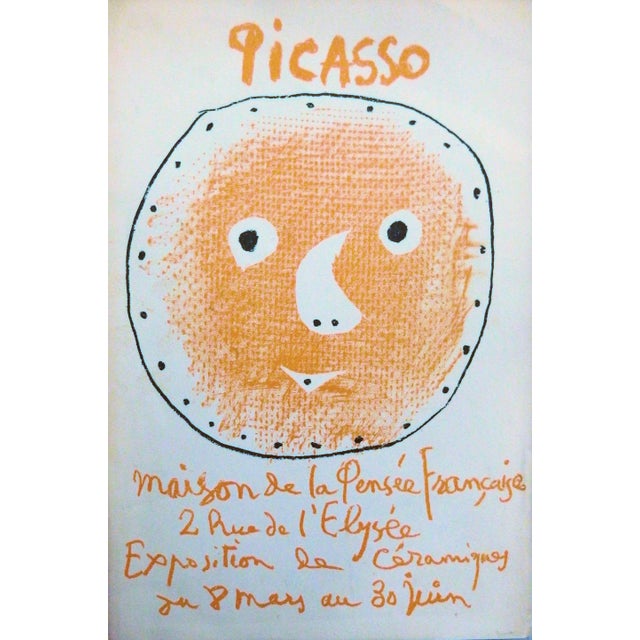 PiCASSO
maison de la Pensée Française
2 Rue de l'Elysée
Exposition de Céramiques
du 8 mars au 30 juin